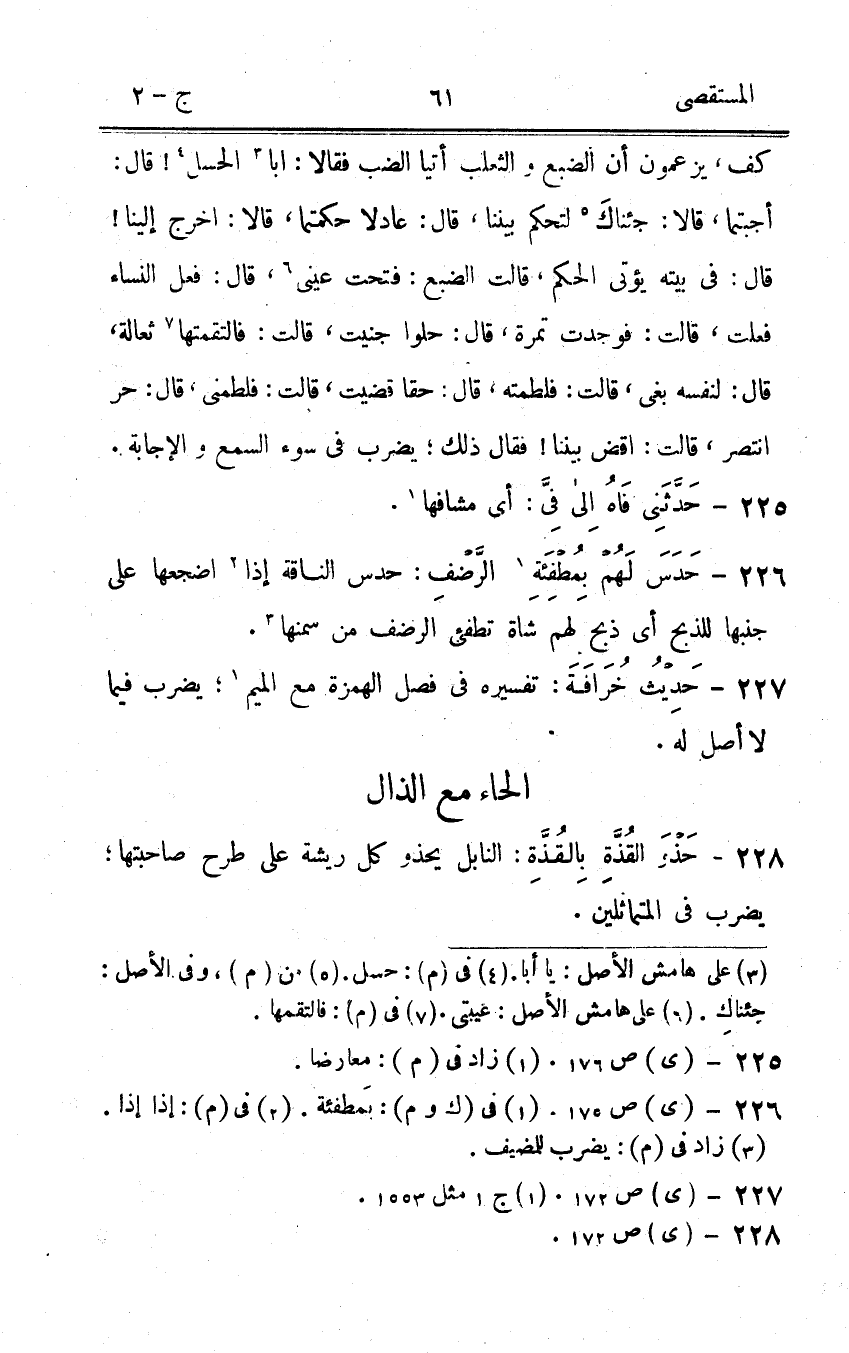 المستقصى ٦١ ج – ٢
كف، يزعمون أن الضبع و الثعلب أتيا الضب فقالا: ابا٣ الحسل٤! قال:
أجبتما، قالا: جئناكَ٥ لتحكم بيننا، قال: عادلا حكمتما، قالا: اخرج إلينا!
قال: فى بيته يؤتى الحكم، قالت الضبع: فتحت عينى٦، قال: فعل النساء
فعلت، قالت: فوجدت تمرة، قال: حلوا جنيت، قالت: فالتقمتها٧ ثعالة،
قال: لنفسه بغى، قالت: فلطمته، قال: حقا قضيت، قالت: فلطمنى، قال: حر
انتصر، قالت: اقض بيننا! فقال ذلك؛ يضرب فى سوء السمع و الإجابة.
٢٢٥ – حَدَّثَنِى فَاهُ إِلىٰ فِىَّ: أى مشافها١.
٢٢٦ – حَدَسَ لَهُمْ بِمُطْفِئَةِ١ الرَّضْفِ: حدس الناقة إذا٢ اضجعها على
جنبها للذبح أى ذبح لهم شاة تطفئ الرضف من سمنها٣.
٢٢٧ – حَدِيْثُ خُرَافَةَ: تفسيره فى فصل الهمزة مع الميم١؛ يضرب فيما
لا أصل له.
الحاء مع الذال
٢٢٨ – حَذْوَ القُذَّةِ بِالقُذَّةِ: النابل يحذو كل ريشة على طرح صاحبتها؛
يضرب فى المتماثلين.
(٣) على هامش الأصل: يا أبا. (٤) فى (م): حسل. (٥) من (م)، وفى الأصل:
جئناكِ. (٦) على هامش الأصل: عيبتى. (٧) فى (م): فالتقمها.
٢٢٥ – (ى) ص ١٧٦. (١) زاد فى (م): معارضا.
٢٢٦ – (ى) ص ١٧٥. (١) فى (ك و م): بمَطفئة. (٢) فى (م): إذا إذا.
(٣) زاد فى (م): يضرب للضيف.
٢٢٧ – (ى) ص ١٧٢. (١) ج ١ مثل ١٥٥٣.
٢٢٨ – (ى) ص ١٧٢.